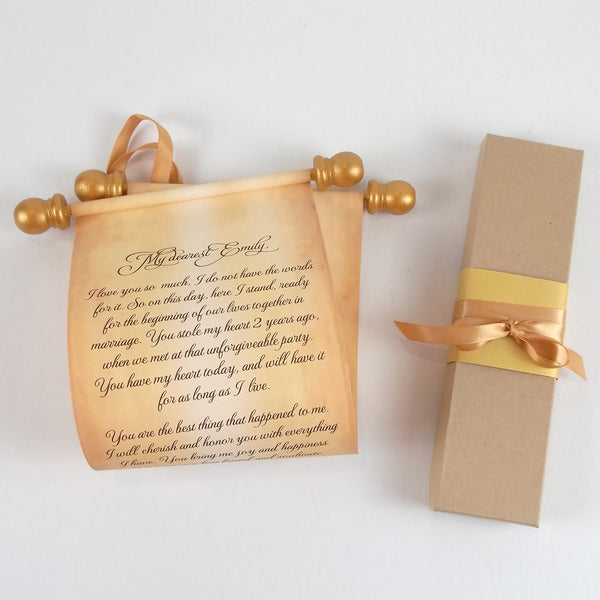 My dearest Emily,
I love you so much, I do not have the words
for it. So on this day, here I stand, ready
for the beginning of our lives together in
marriage. You stole my heart 2 years ago,
when we met at that unforgiveable party.
You have my heart today, and will have it
for as long as I live.
You are the best thing that happened to me.
I will cherish and honor you with everything
I have. You bring me joy and happiness.
best friend and soulmate